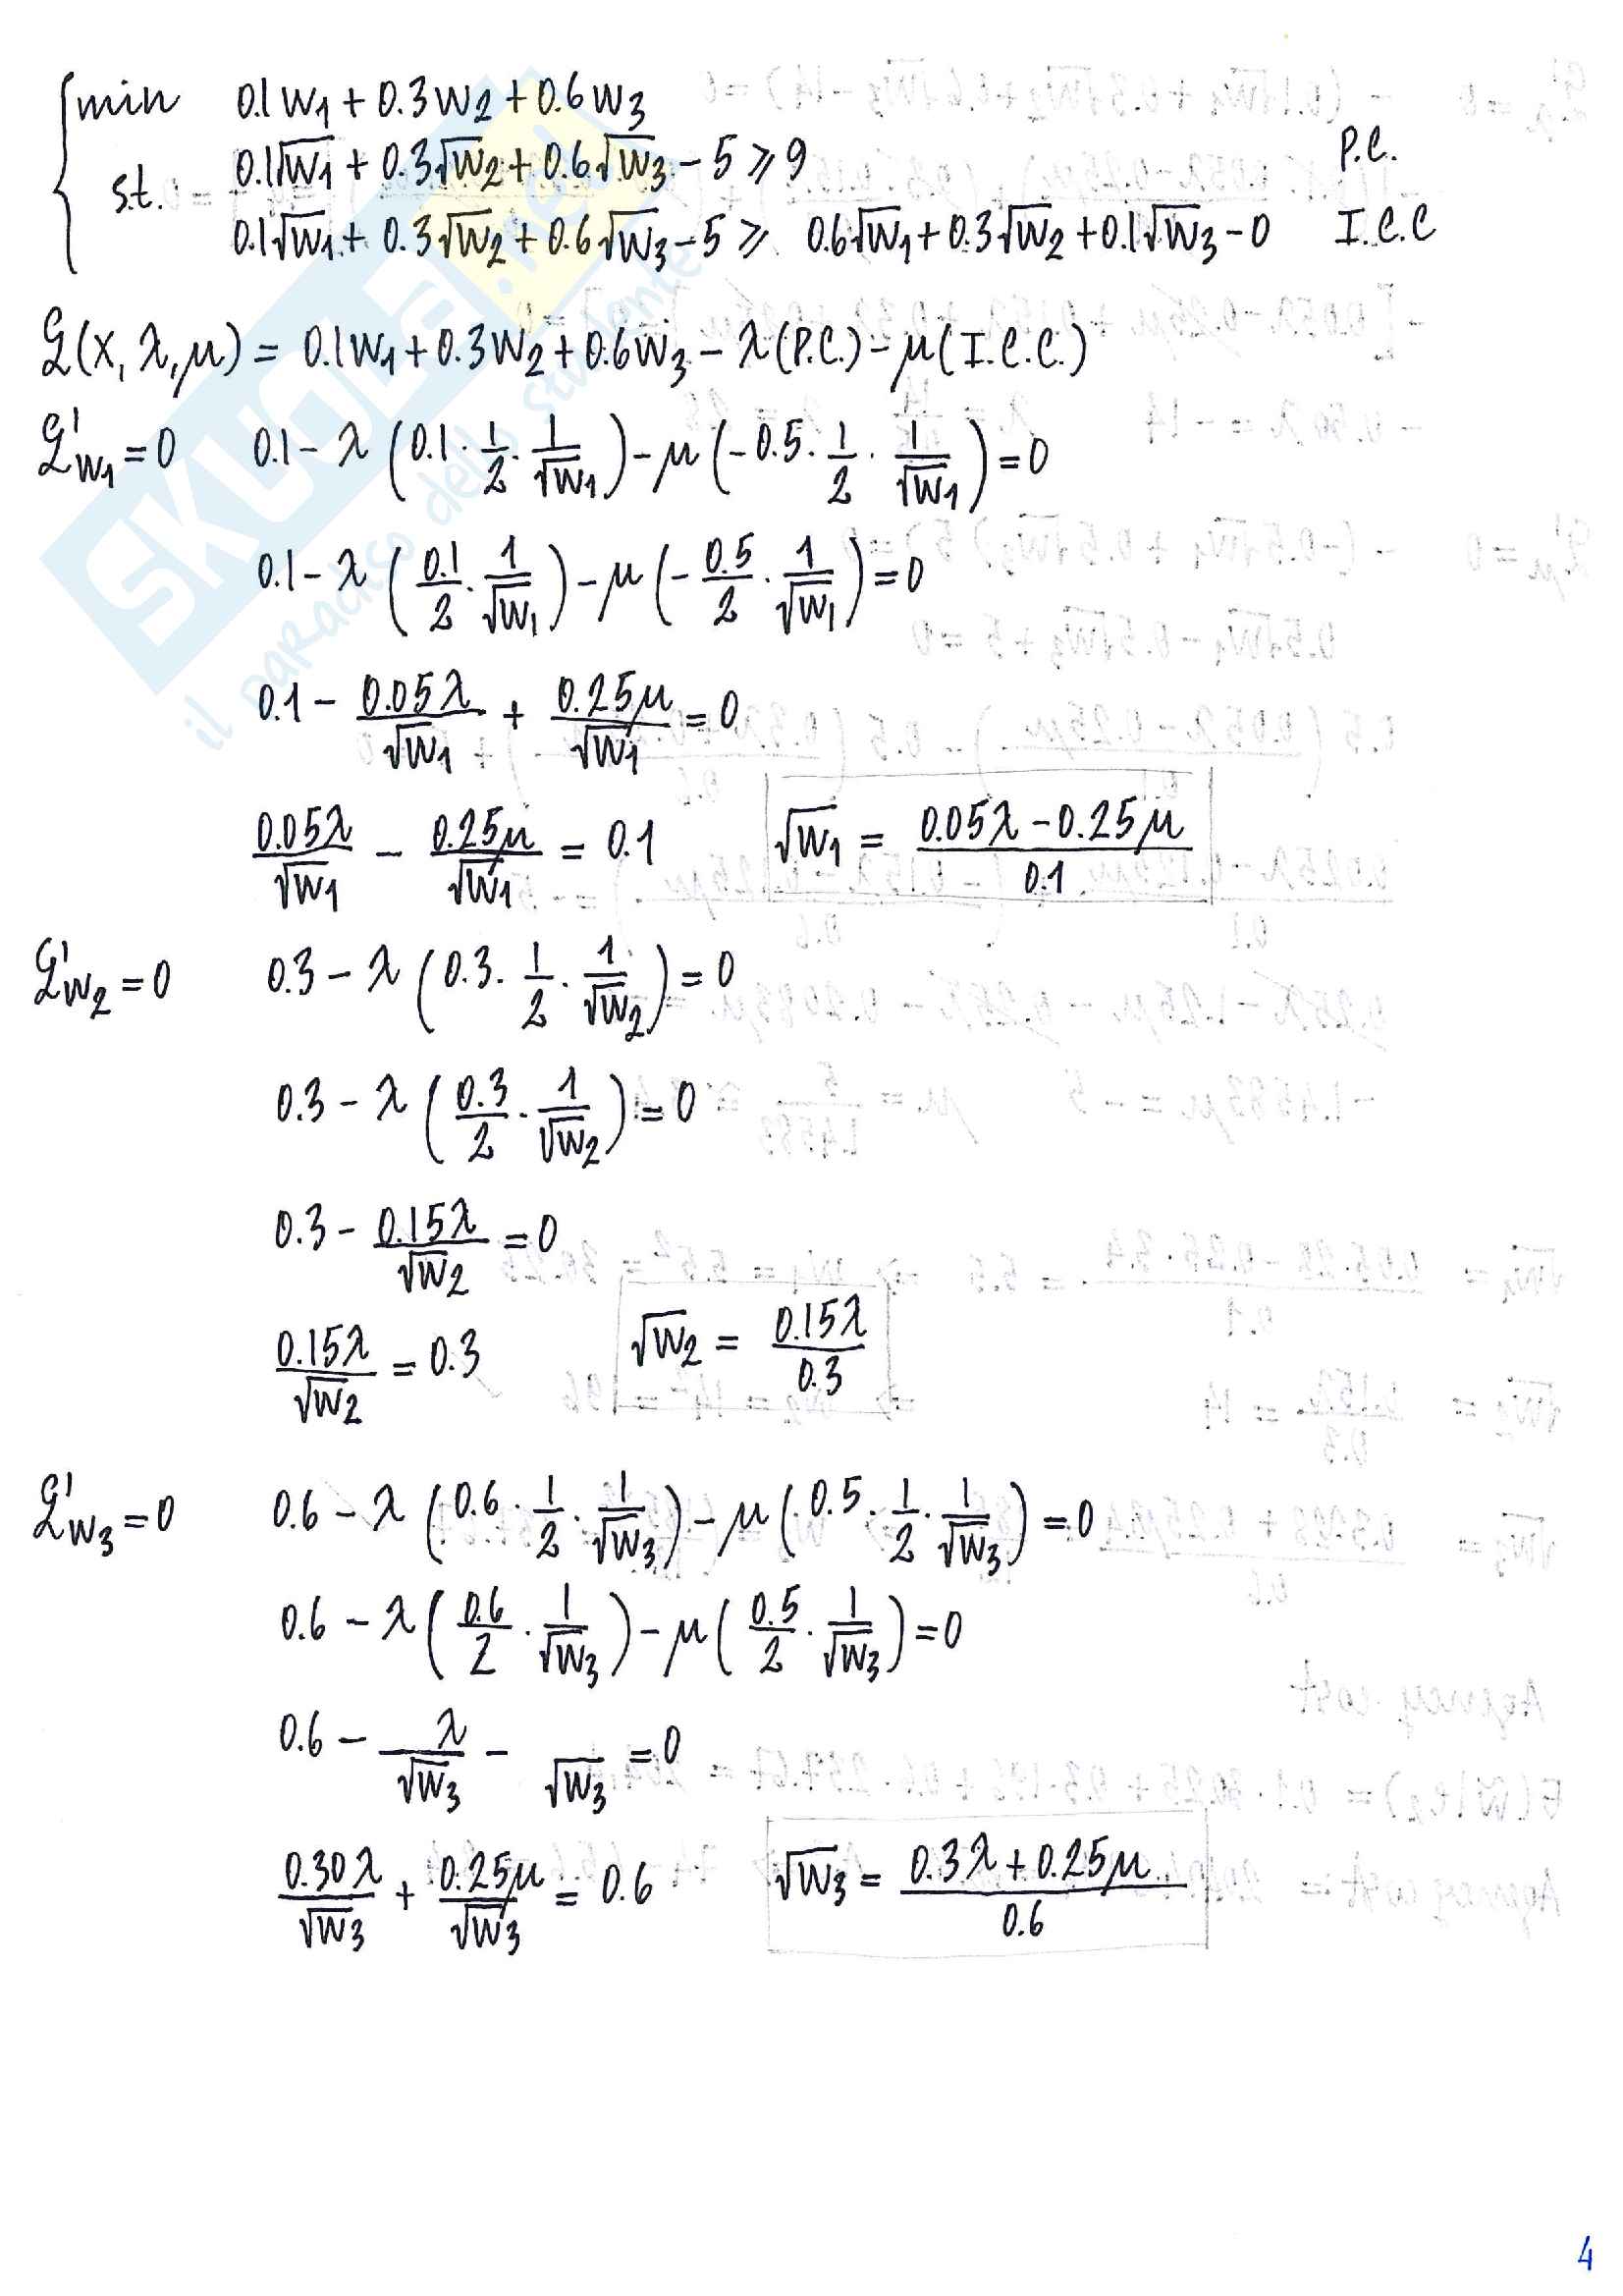 min 0.1w₁ + 0.3w₂ + 0.6w₃
s.t. 0.1√w₁ + 0.3√w₂ + 0.6√w₃ - 5 ⩾ 9 P.C.
0.1√w₁ + 0.3√w₂ + 0.6√w₃ - 5 ⩾ 0.6√w₁ + 0.3√w₂ + 0.1√w₃ - 0 I.C.C
ℒ(x, λ, μ) = 0.1w₁ + 0.3w₂ + 0.6w₃ - λ(P.C.) - μ(I.C.C.)
ℒ'w₁ = 0 0.1 - λ (0.1 · 1/2 · 1/√w₁) - μ (-0.5 · 1/2 · 1/√w₁) = 0
0.1 - λ (0.1/2 · 1/√w₁) - μ (-0.5/2 · 1/√w₁) = 0
0.1 - 0.05λ/√w₁ + 0.25μ/√w₁ = 0
0.05λ/√w₁ - 0.25μ/√w₁ = 0.1 √w₁ = (0.05λ - 0.25μ)/0.1
ℒ'w₂ = 0 0.3 - λ (0.3 · 1/2 · 1/√w₂) = 0
0.3 - λ (0.3/2 · 1/√w₂) = 0
0.3 - 0.15λ/√w₂ = 0
0.15λ/√w₂ = 0.3 √w₂ = 0.15λ/0.3
ℒ'w₃ = 0 0.6 - λ (0.6 · 1/2 · 1/√w₃) - μ (0.5 · 1/2 · 1/√w₃) = 0
0.6 - λ (0.6/2 · 1/√w₃) - μ (0.5/2 · 1/√w₃) = 0
0.6 - λ/√w₃ - /√w₃ = 0
0.30λ/√w₃ + 0.25μ/√w₃ = 0.6 √w₃ = (0.3λ + 0.25μ)/0.6
4
SKUOLA.net
il paradiso dello studente